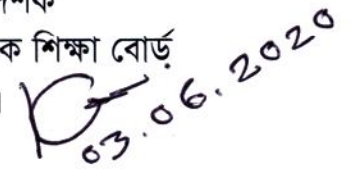 ক শিক্ষা বোর্ড
03.06.2020